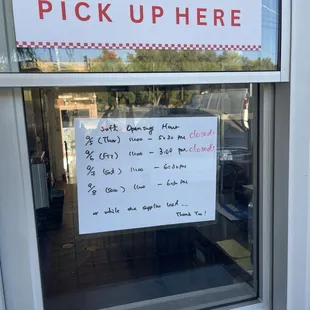 PICK UP HERE
Soft Opening Hour
9/5 (Thur) 11:00 - 5:30 pm closed
9/6 (Fri) 11:00 - 3:00 pm closed
9/7 (Sat) 11:00 - 6:30 pm
9/8 (Sun) 11:00 - 6:30 pm
or while the supplies last...
Thank You!